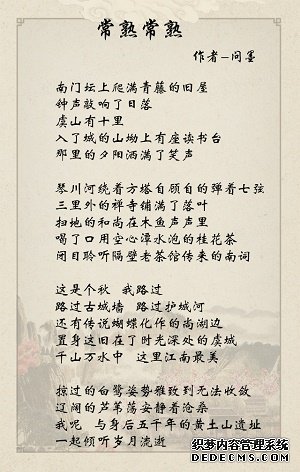 常熟常熟
作者—问墨
南门坛上爬满青藤的旧屋
钟声敲响了日落
虞山有十里
入了城的山坳上有座读书台
那里的夕阳洒满了笑声
琴川河绕着方塔自顾自的弹着七弦
三里外的禅寺铺满了落叶
扫地的和尚在木鱼声声里
喝了口用空心潭水泡的桂花茶
闭目聆听隔壁老茶馆传来的南词
这是个秋 我路过
路过古城墙 路过护城河
还有传说蝴蝶化作的尚湖边
置身这旧在了时光深处的虞城
千山万水中 这里江南最美
掠过的白鹭姿势雅致到无法收敛
辽阔的芦苇荡安静着沧桑
我呢 与身后五千年的黄土山遗址
一起倾听岁月流逝
织梦内容管理系统
DEDECMS.COM